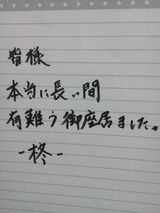 皆様
本当に長い間
有難う御座居ました。
-柊-